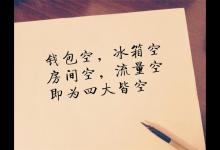 钱包空，冰箱空
房间空，流量空
即为四大皆空